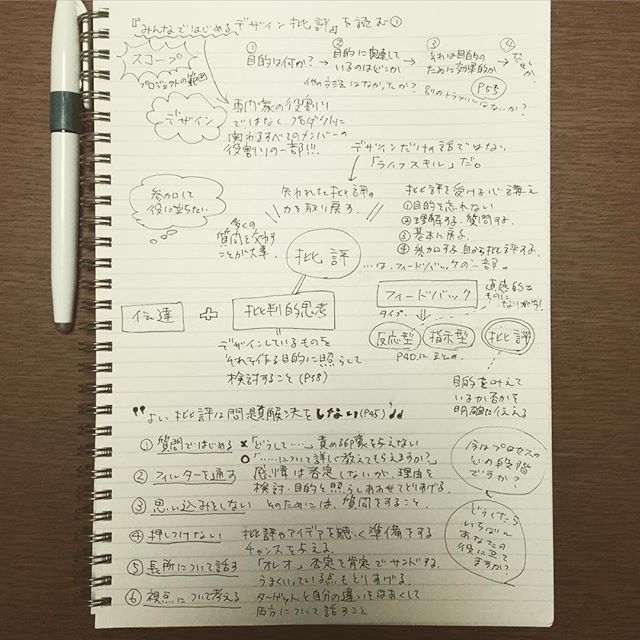 『みんなではじめるデザイン批評』を読む①
スコープ
プロジェクトの範囲
①目的は何か？→
②目的に関連しているのはどこか
他の方法はなかったか？
③それは目的のために効果的か
別のトラブルはないか？
P55
④なぜか
デザイン
専門家の役割り
ではなく、プロダクトに
関わるすべてのメンバーの
役割りの一部!!!
デザインだけの話ではない
「ライフスキル」だ。
参加して
役に立ちたい
失われた批評の
力を取り戻す。
多くの
質問を交わす
ことが大事。
批評
批評を受ける心構え
①目的を忘れない
②理解する、質問する。
③基本に戻る
④参加する 自ら批評する。
…は、フィードバックの一部。
伝達 + 批判的思考
デザインしているものを
それを作る目的に照らして
検討すること(P38)
フィードバック
直感的な
ものに
なりがち！
タイプ
反応型 指示型 批評
P40にまとめ
目的を叶えて
いるか否かを
明確に伝える
"よい批評は問題解決をしない(P45)"
①質問ではじめる ×「どうして……」責める印象を与えない
○「……について詳しく教えてもらえますか？」
②フィルターを通す 感情は否定しないが、理由を
検討・目的と照らしあわせてとりあげる。
③思い込みをしない そのためには、質問をすること。
④押しつけない 批評やアイデアを聴く準備をする
チャンスを与える
⑤長所について話す 「オレオ」否定を肯定でサンドする。
うまくいっている点もとりあげる。
⑥視点について考える ターゲットと自分の違いをはあくして
両方について話すこと
今はプロセスの
どの段階
ですか？
どうしたら
いちばん
あなたの
役に立て
ますか？